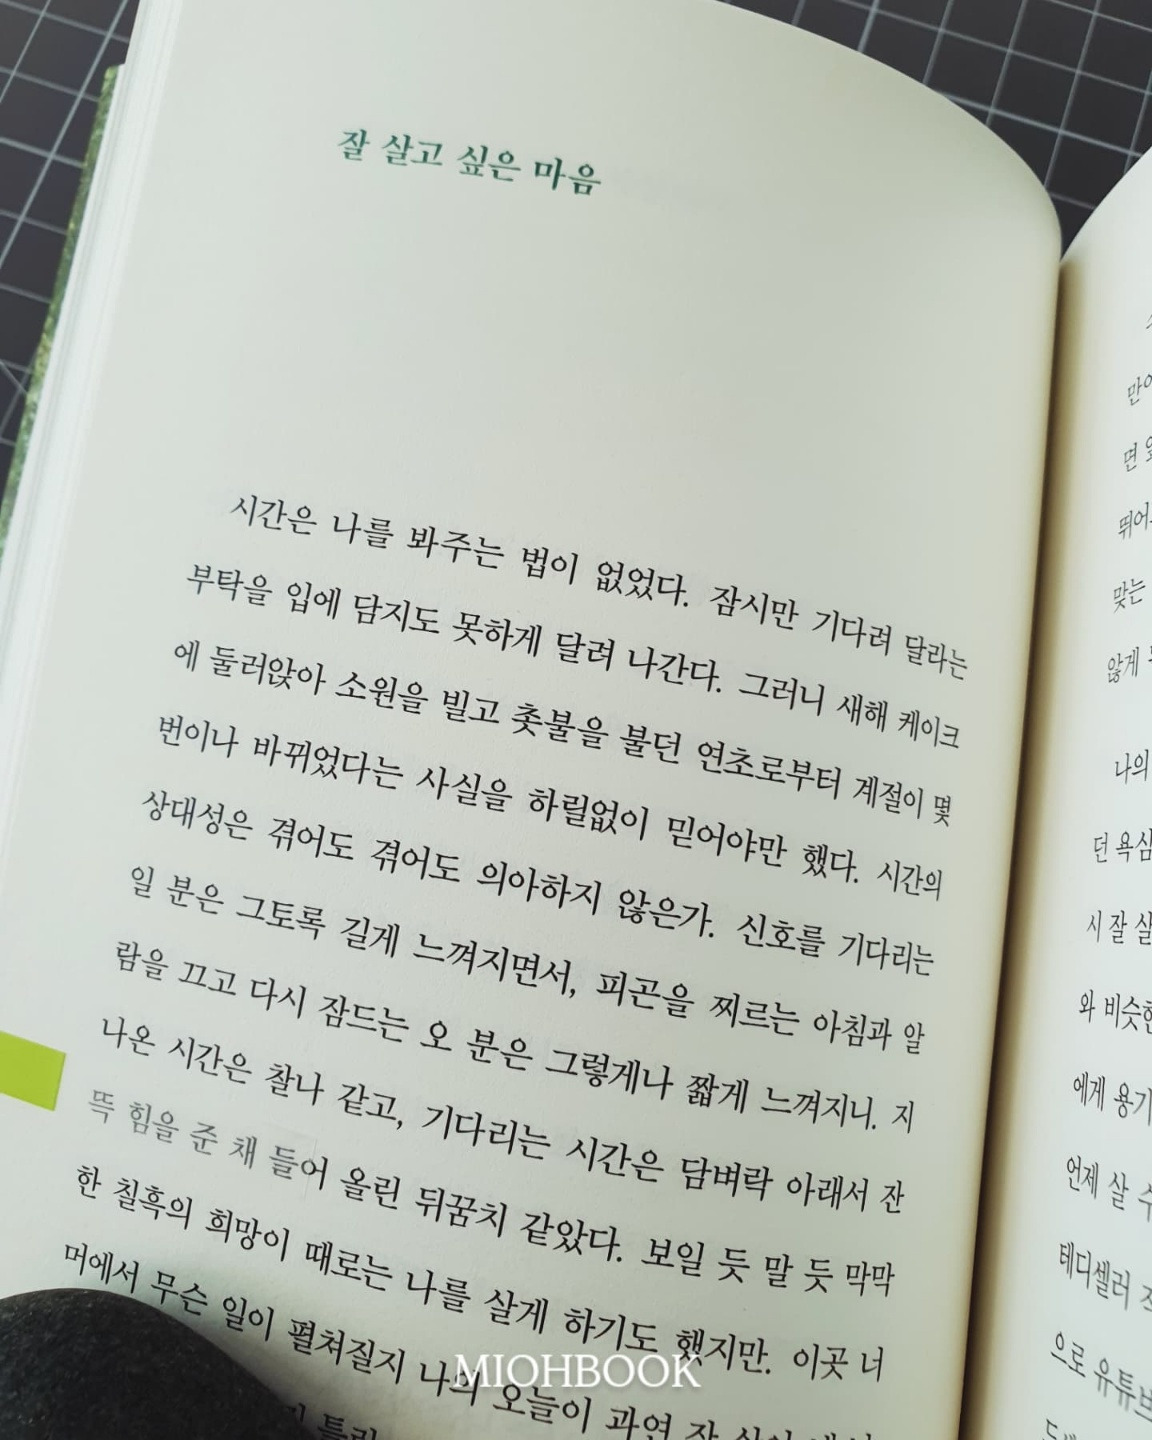 잘 살고 싶은 마음
시간은 나를 봐주는 법이 없었다. 잠시만 기다려 달라는
부탁을 입에 담지도 못하게 달려 나간다. 그러니 새해 케이크
에 둘러앉아 소원을 빌고 촛불을 불던 연초로부터 계절이 몇
번이나 바뀌었다는 사실을 하릴없이 믿어야만 했다. 시간의
상대성은 겪어도 겪어도 의아하지 않은가. 신호를 기다리는
일 분은 그토록 길게 느껴지면서, 피곤을 찌르는 아침과 알
람을 끄고 다시 잠드는 오 분은 그렇게나 짧게 느껴지니. 지
나온 시간은 찰나 같고, 기다리는 시간은 담벼락 아래서 잔
뜩 힘을 준 채 들어 올린 뒤꿈치 같았다. 보일 듯 말 듯 막막
한 칠흑의 희망이 때로는 나를 살게 하기도 했지만. 이곳 너
머에서 무슨 일이 펼쳐질지 나의 오늘이 과연 잘
MIOHBOOK
면
뛰어
맞는
않게
나의
던 욕심
시 잘 살
와 비슷한
에게 용기
언제 살 수
테디셀러
으로 유튜브